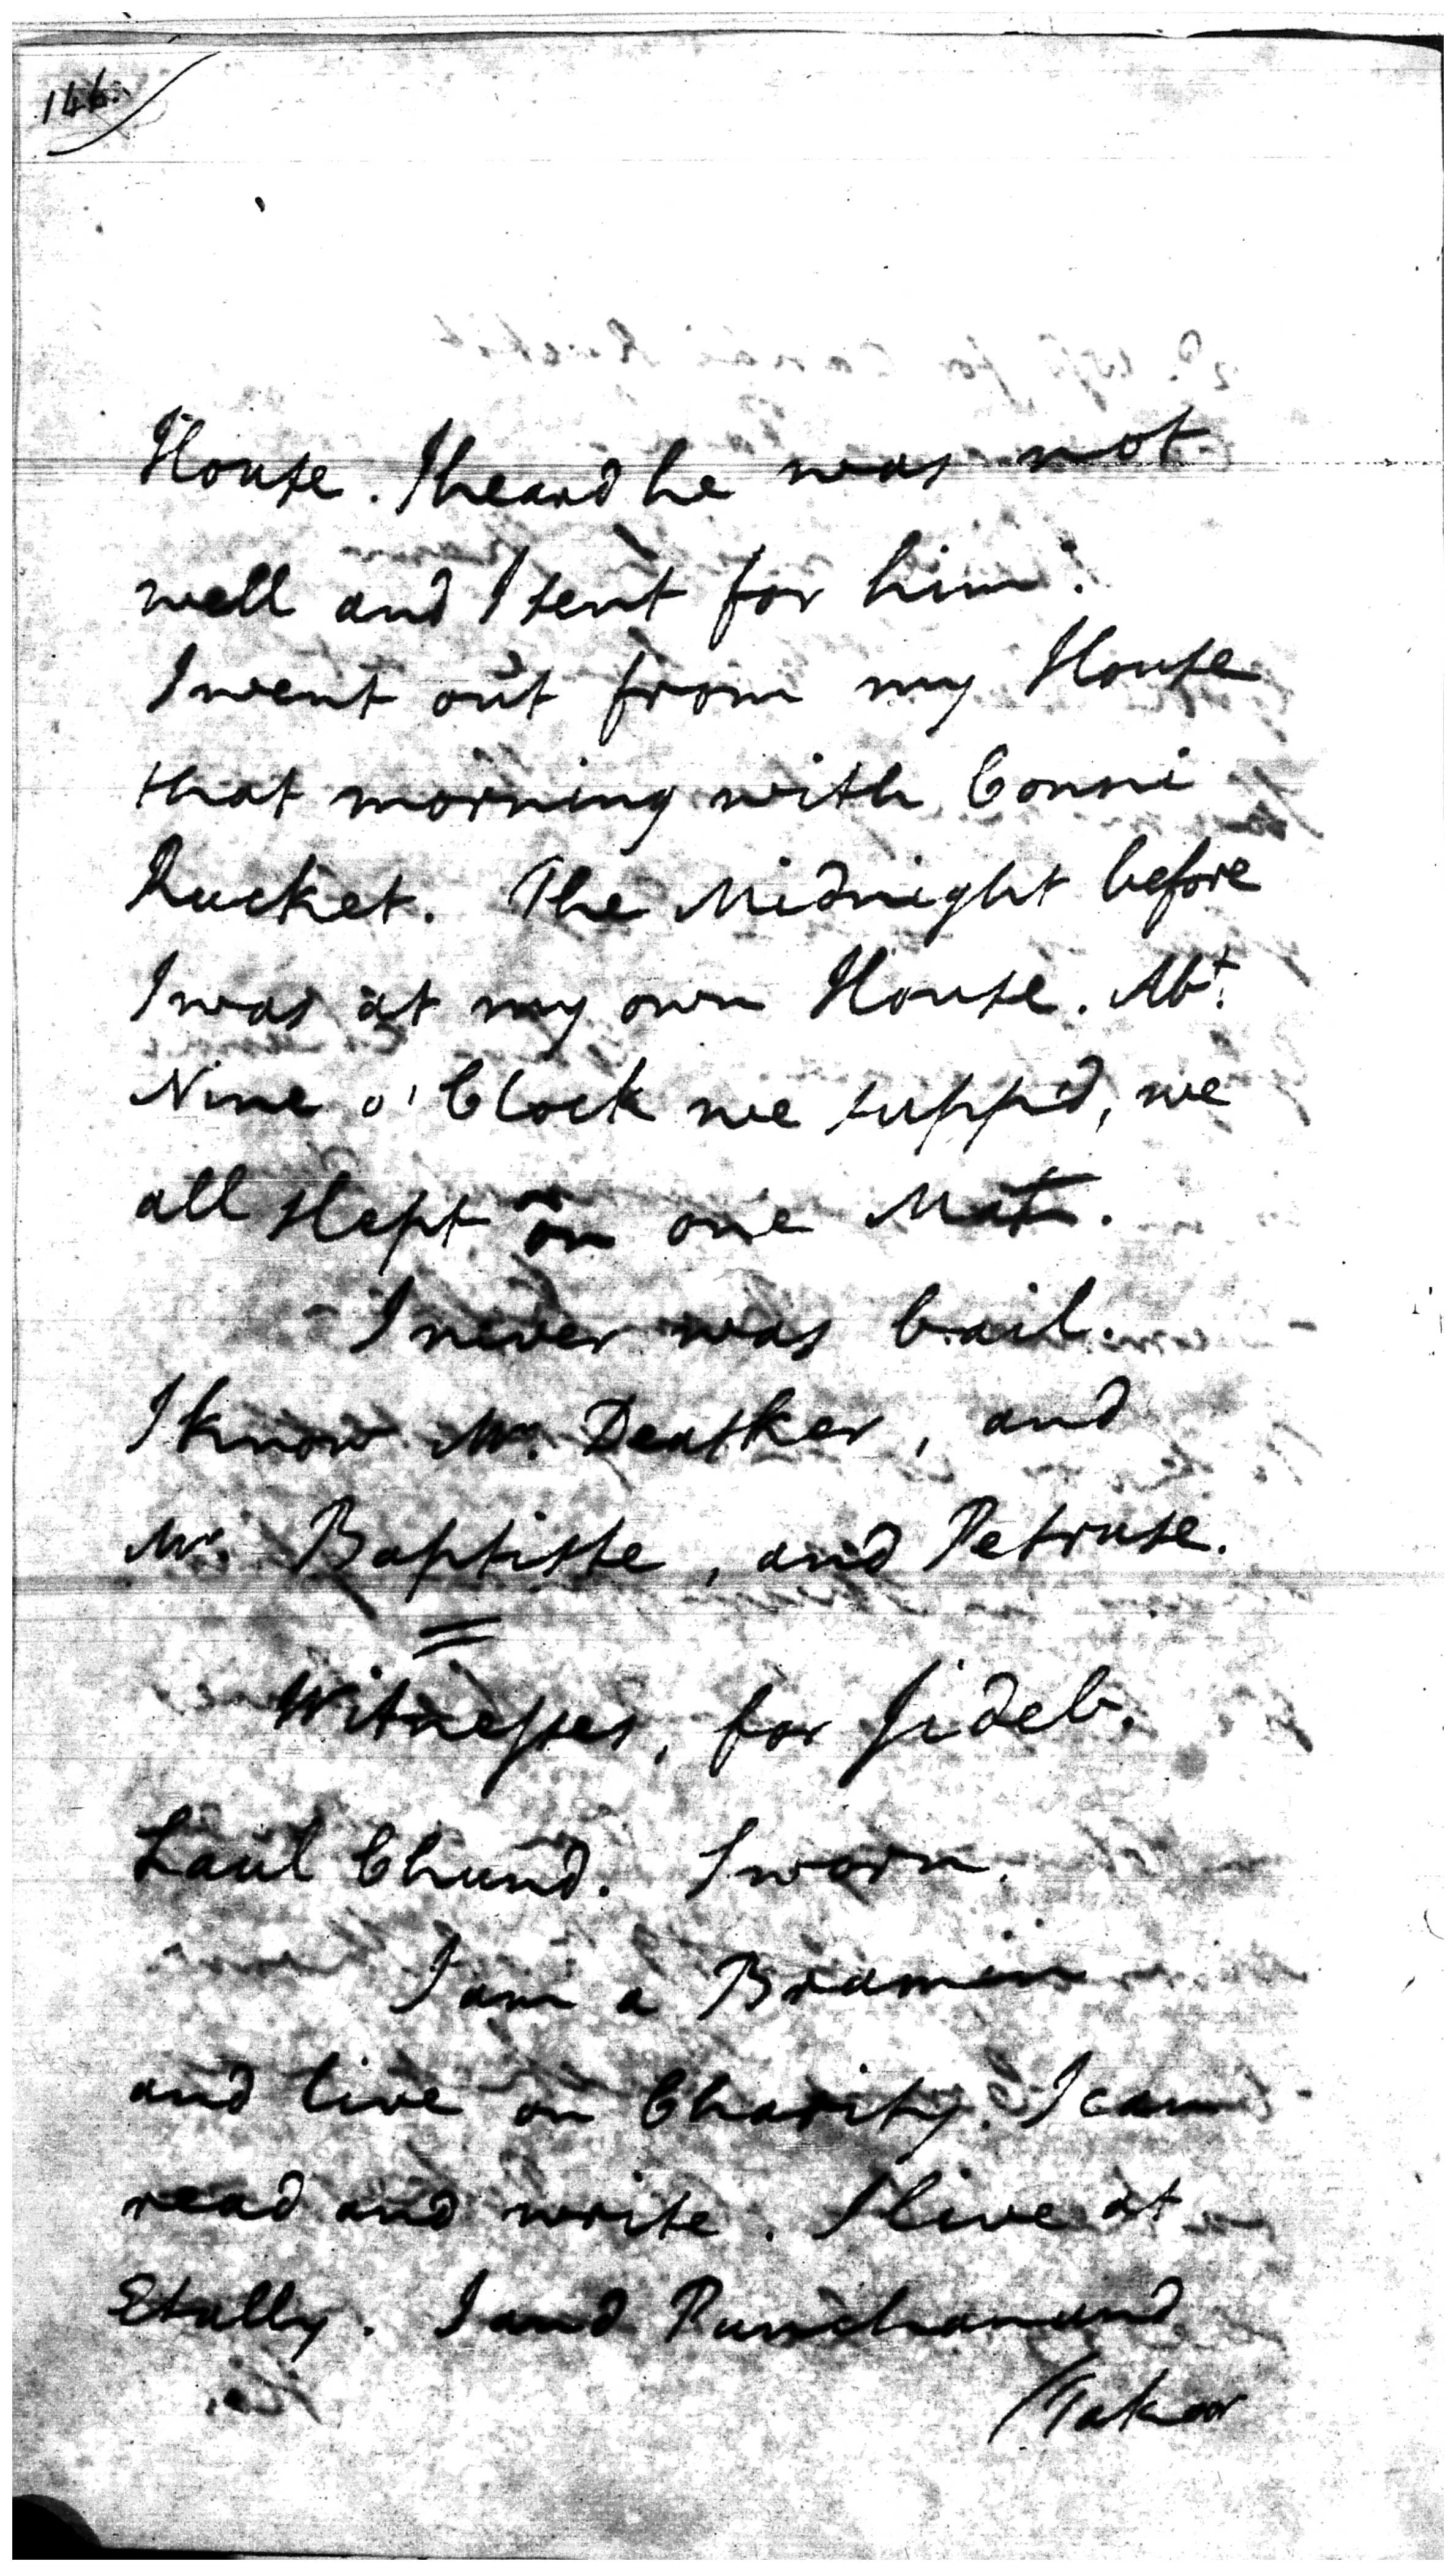 146.
House. I heard he was not
well and I sent for him.
I went out from my House
that morning with Conni
Rucket. The Midnight before
I was at my own House. Abt.
Nine o'Clock we supp'd, we
all slept on one Mat.
I never was bail.
I know Mr. Deasker, and
Mr. Baptiste, and Petruse.
Witnesses, for Jideb.
Laul Chund. Sworn.
I am a Bramin
and live on Charity. I can
read and write. I live at
Etally. I and Punchanund
Takoor